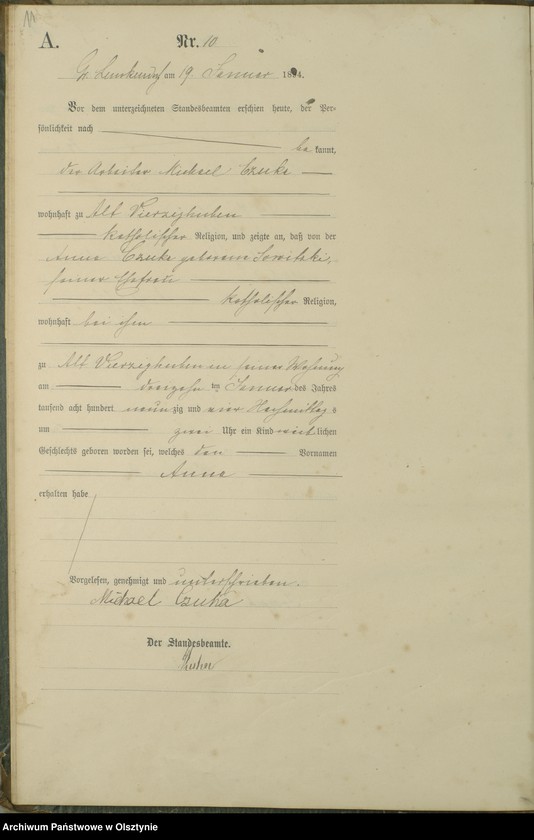 11
A.
Nr. 10
Gr. Leschienen am 19 Januar 1894.
Vor dem unterzeichneten Standesbeamten erschien heute, der Per-
sönlichkeit nach
be kannt,
der Arbeiter Michael Czuka
wohnhaft zu Alt Vierzighuben
katholischer Religion, und zeigte an, daß von der
Anna Czuka geborenen
seiner Ehefrau
katholischer Religion,
wohnhaft bei ihm
zu Alt Vierzighuben in seiner Wohnung
am dreizehn ten Januar des Jahres
tausend acht hundert neun zig und vier Nachmittags
um zwei Uhr ein Kind weiblichen
Geschlechts geboren worden sei, welches den Vornamen
Anna
erhalten habe
Vorgelesen, genehmigt und unterschrieben.
Michael Czuka
Der Standesbeamte.
Kuhn
Archiwum Państwowe w Olsztynie